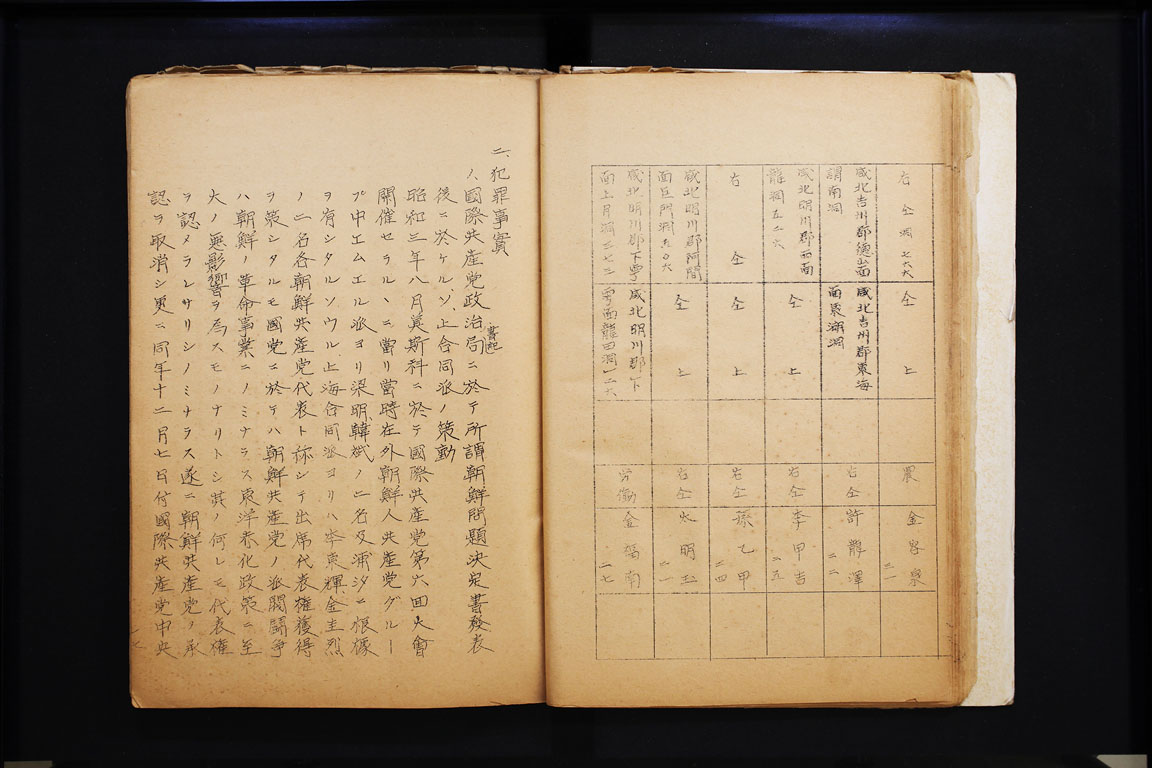 右仝洞七六六
仝上
農
金容泉
三一
咸北吉州郡德山面
謂南洞
咸北吉州郡東海
面東湖洞
右仝
許龍澤
二二
咸北明川郡西面
龍洞五二六
仝上
右仝
李甲吉
二五
右仝
仝上
右仝
孫乙甲
二四
咸北明川郡阿間
面巨門洞五〇六
仝上
右仝
火明玉
二一
咸北明川郡下雩
面上月洞三七三
咸北明川郡下
雩面龍田洞一二六
労働
金福南
二七
二、犯罪事實
1、國際共産党政治局書記ニ於テ所謂朝鮮問題決定書發表
後ニ於ケル、ソ、上合同派ノ策動
昭和三年八月莫斯科ニ於テ國際共産党第六回大會
開催セラルヽニ當リ當時在外朝鮮人共産党グルー
プ中エムエル派ヨリ梁明、韓斌ノ二名及浦汐ニ根據
ヲ有シタルソウル上海合同派ヨリハ李東輝、金圭烈
ノ二名各朝鮮共産党代表ト稱シテ出席代表權獲得
ヲ策シタルモ國党ニ於テハ朝鮮共産党ノ派閥鬪爭
ハ朝鮮ノ革命事業ニノミナラス東洋赤化政策ニ至
大ノ悪影響ヲ為スモノナリトシ其ノ何レモ代表權
ヲ認メラレサリシノミナラス遂ニ朝鮮共産党ノ承
認ヲ取消シ更ニ同年十二月七日付國際共産党中央